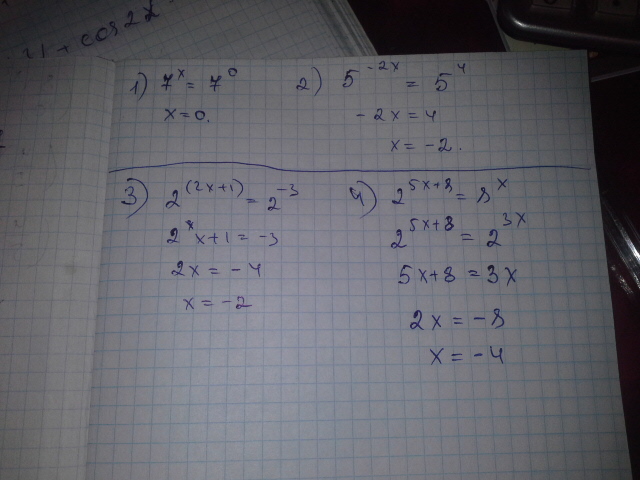 + cos2x
1) 7^x = 7^0
x = 0.
2) 5^-2x = 5^4
-2x = 4
x = -2.
3) 2^(2x+1) = 2^-3
2^x x+1 = -3
2x = -4
x = -2
4) 2^5x+8 = 8^x
2^5x+8 = 2^3x
5x+8 = 3x
2x = -8
x = -4